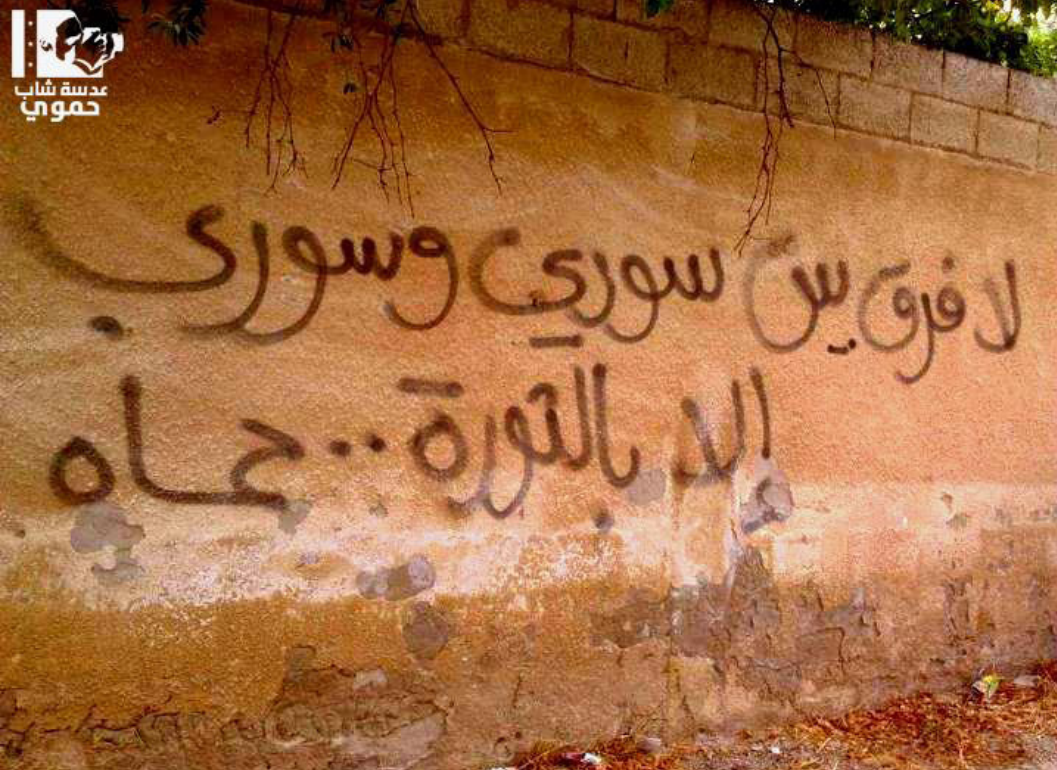 عدسة شاب
حموي
لا فرق بين سوري وسوري
إلا بالثورة .. حماه